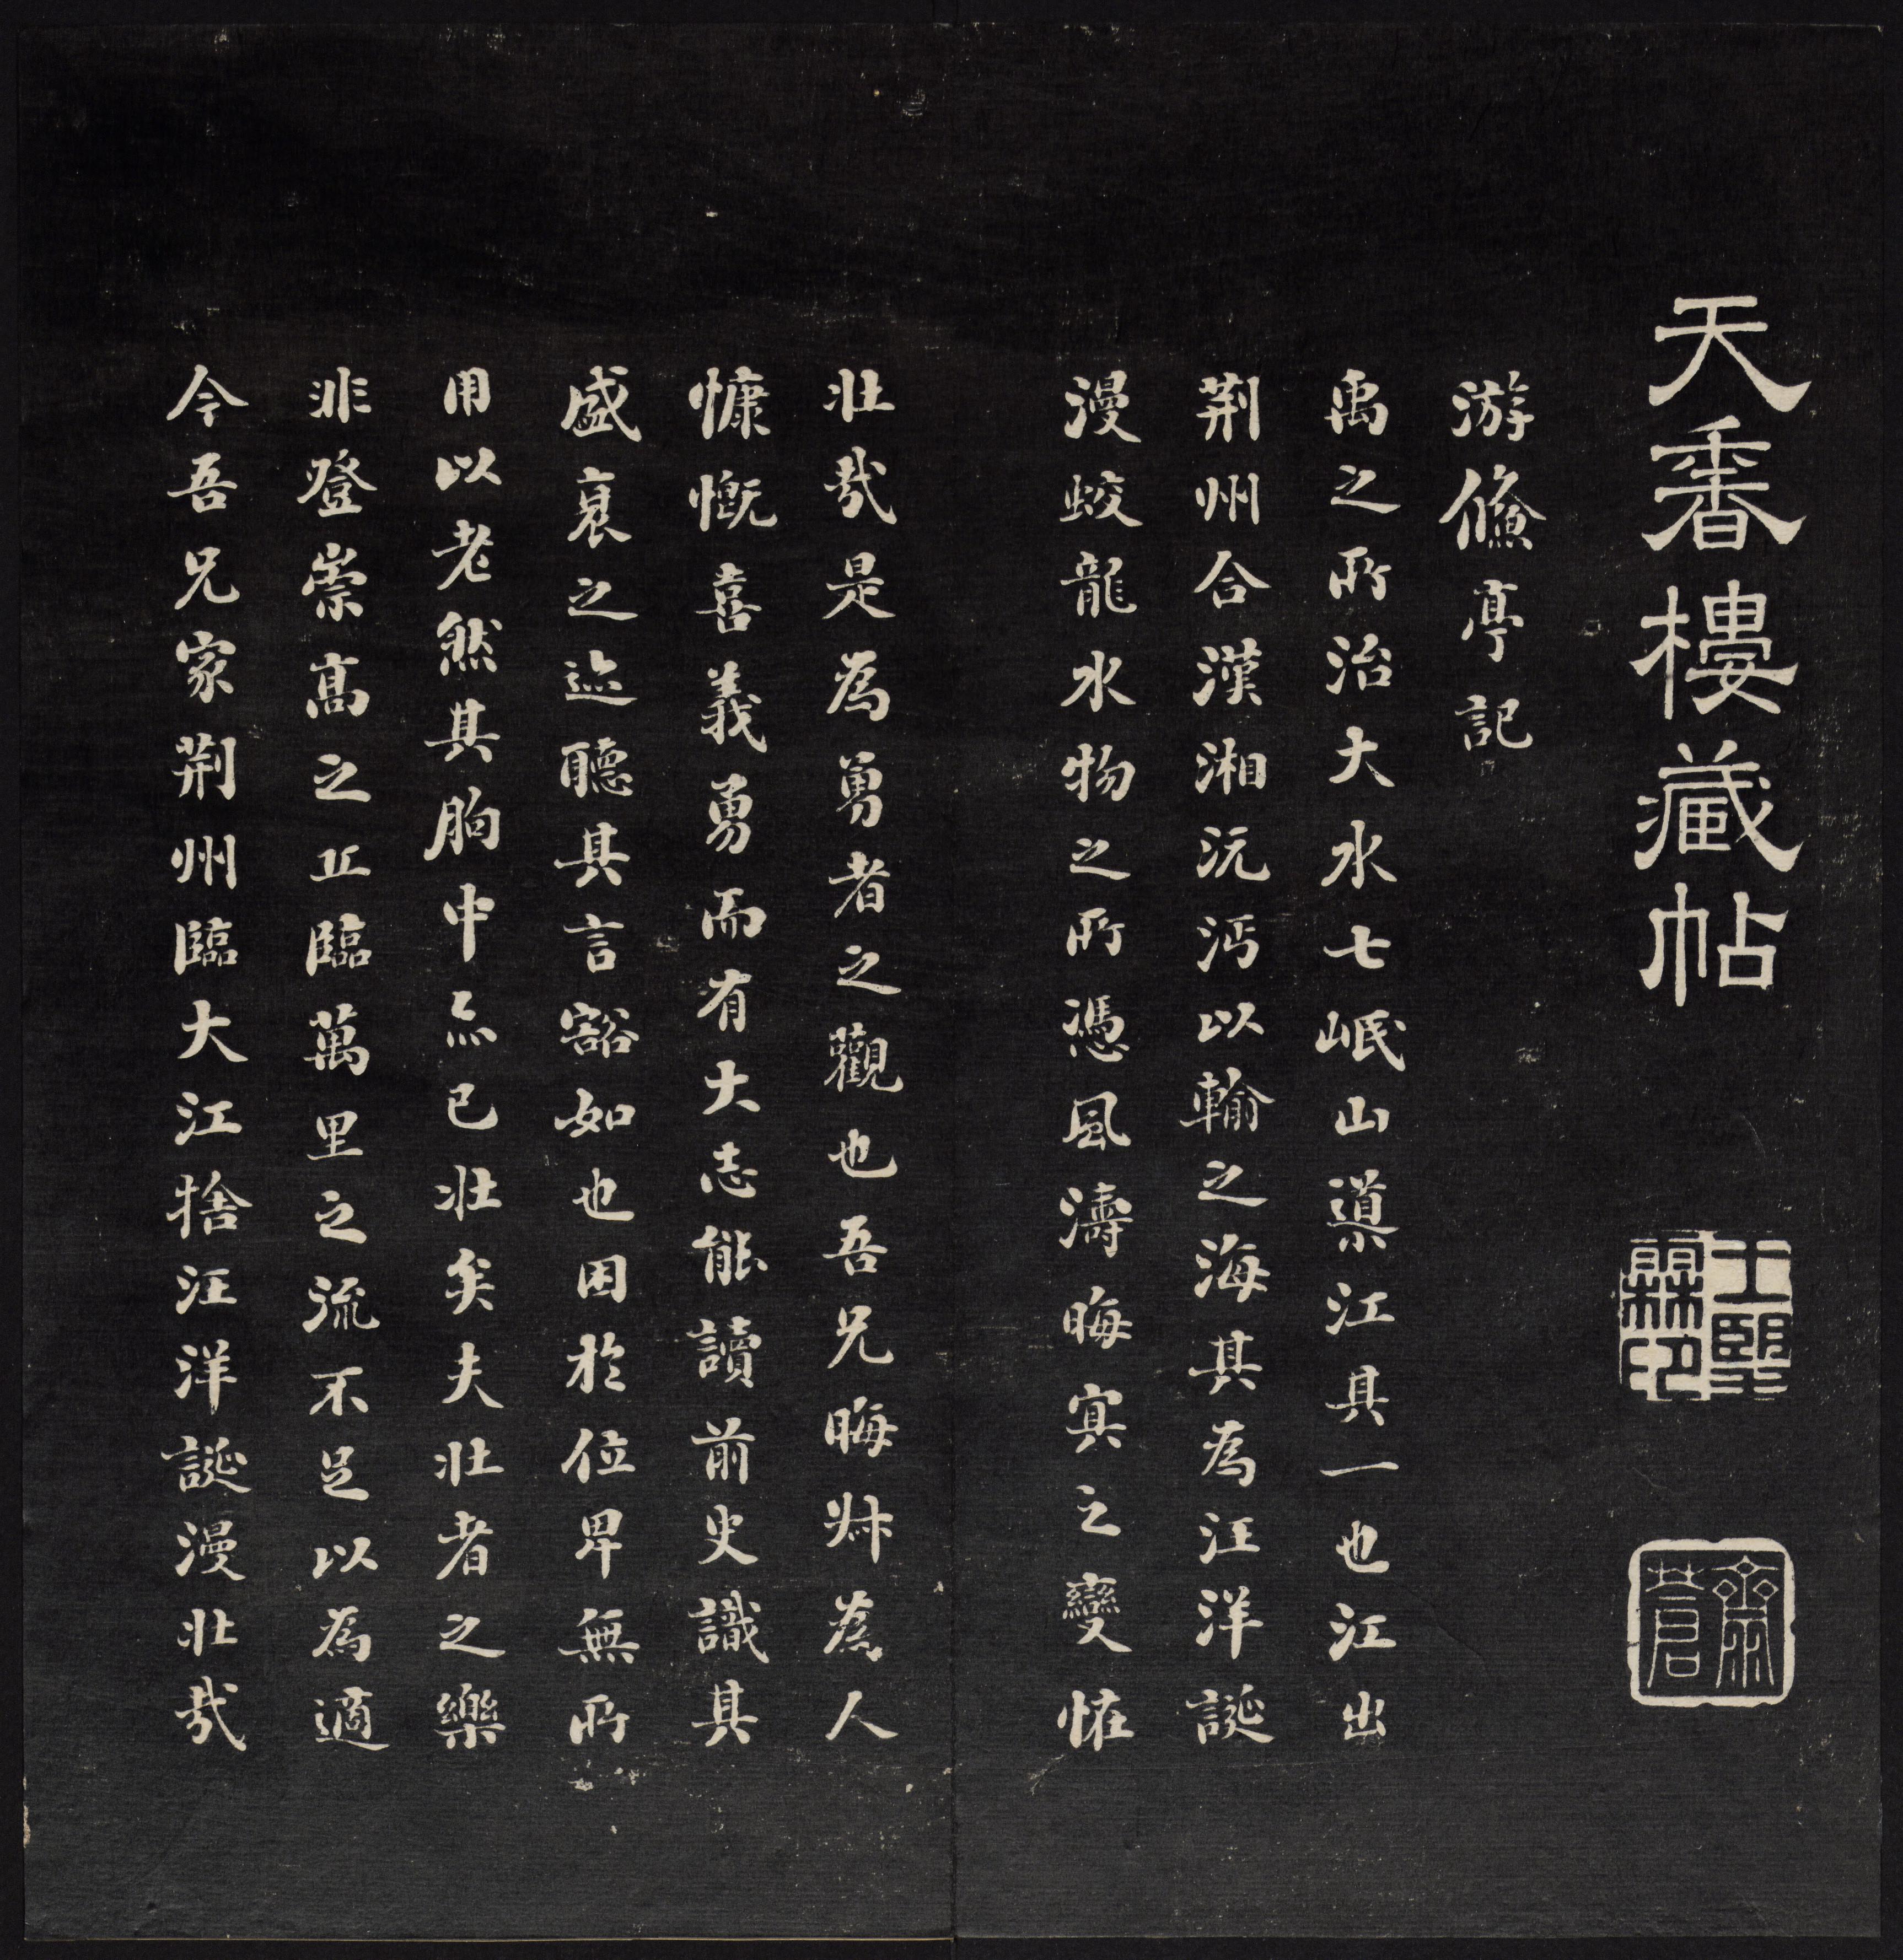 天香樓藏帖
游鯈亭記
禹之所治大水七岷山導江其一也江出
荆州合漢湘沅沔以輸之海其為汪洋誕
漫蛟龍水物之所憑風濤晦冥之變恠
壯哉是為勇者之觀也吾兄晦叔為人
慷慨喜義勇而有大志能讀前史識其
盛衰之迹聽其言豁如也困於位卑無所
用以老然其胸中亦已壯矣夫壯者之樂
非登崇高之丘臨萬里之流不足以為適
今吾兄家荆州臨大江捨汪洋誕漫壯哉